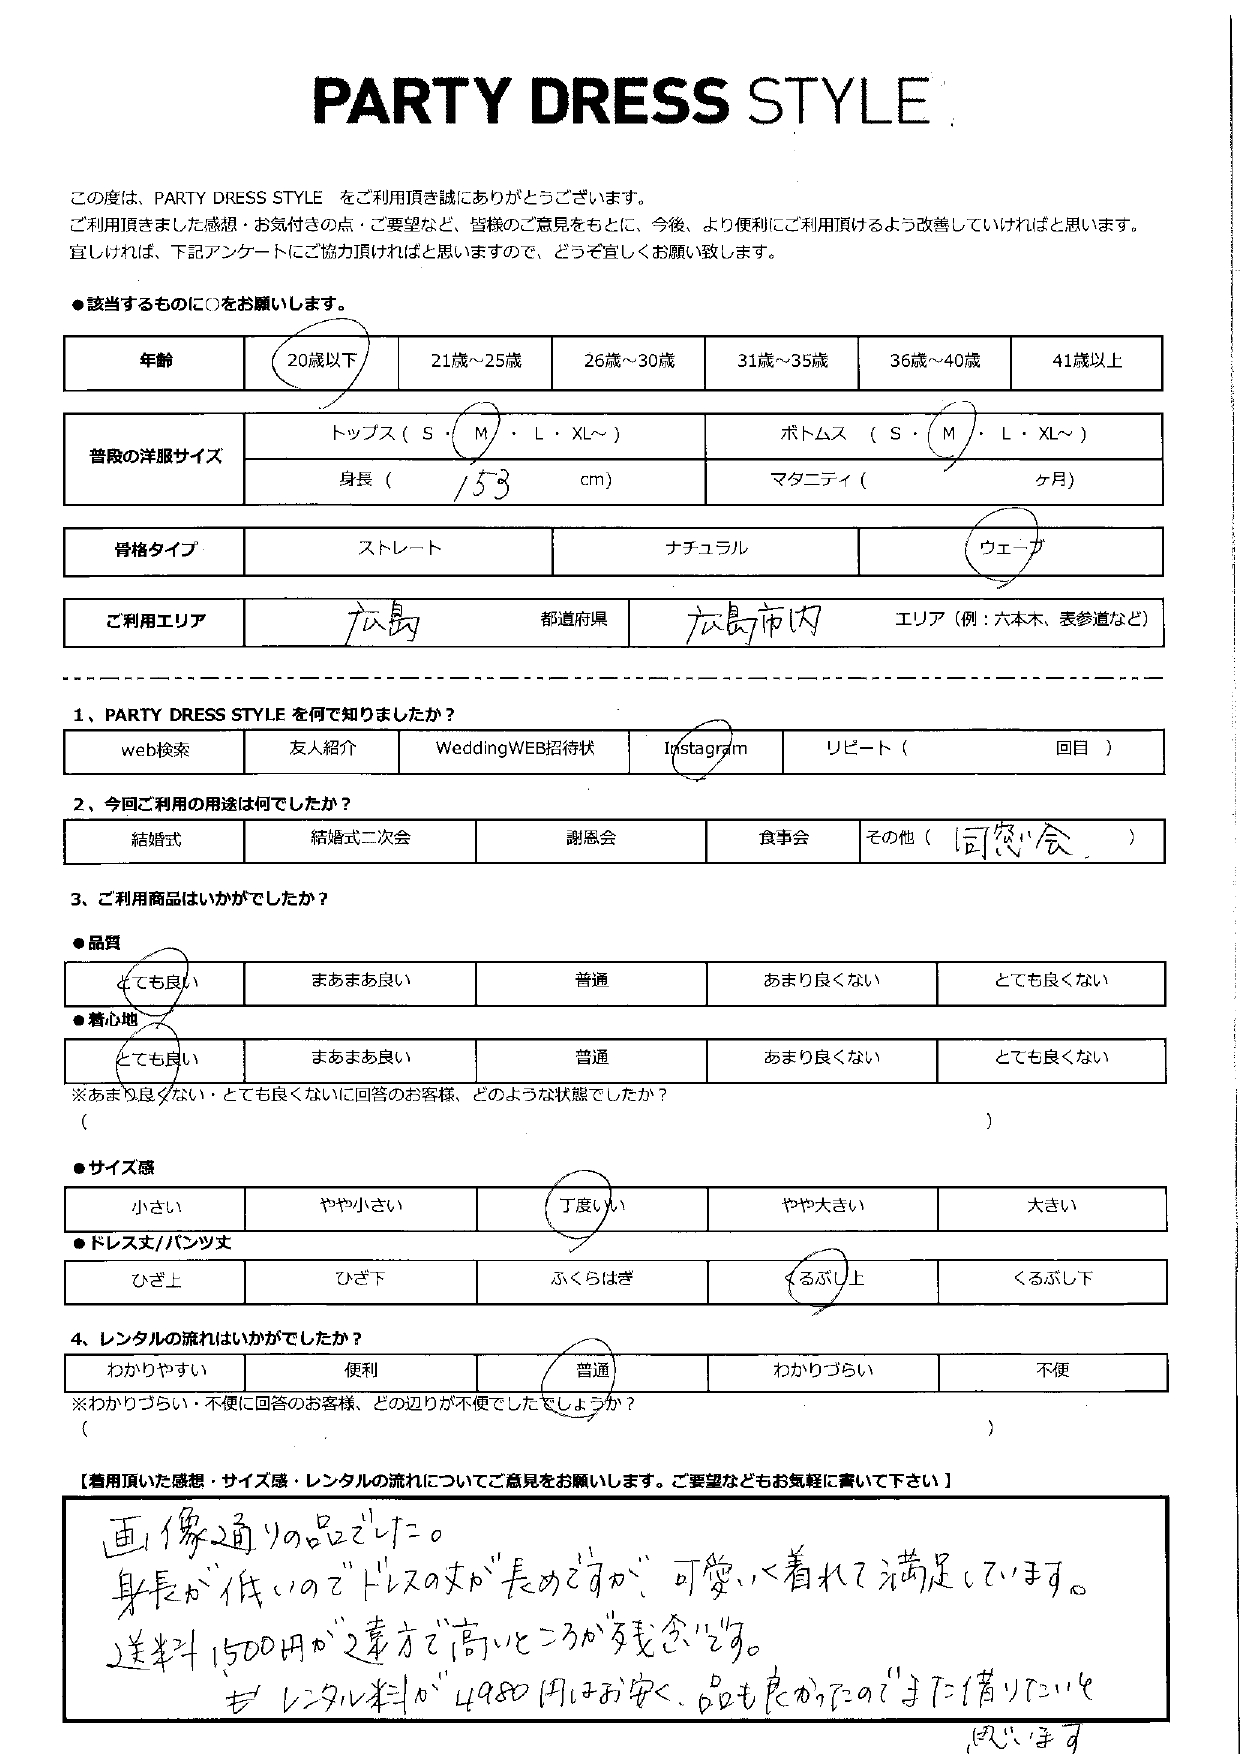 PARTY DRESS STYLE
この度は、PARTY DRESS STYLE をご利用頂き誠にありがとうございます。
ご利用頂きました感想・お気付きの点・ご要望など、皆様のご意見をもとに、今後、より便利にご利用頂けるよう改善していければと思います。
宜しければ、下記アンケートにご協力頂ければと思いますので、どうぞ宜しくお願い致します。
●該当するものに○をお願いします。
年齢 20歳以下 21歳～25歳 26歳～30歳 31歳～35歳 36歳～40歳 41歳以上
普段の洋服サイズ トップス ( S ・ M ・ L ・ XL～ ) ボトムス ( S ・ M ・ L ・ XL～ )
身長 ( 153 cm) マタニティ ( ヶ月)
骨格タイプ ストレート ナチュラル ウェーブ
ご利用エリア 広島 都道府県 広島市内 エリア（例：六本木、表参道など）
1、PARTY DRESS STYLE を何で知りましたか？
web検索 友人紹介 WeddingWEB招待状 Instagram リピート ( 回目 )
2、今回ご利用の用途は何でしたか？
結婚式 結婚式二次会 謝恩会 食事会 その他 ( 同窓会 )
3、ご利用商品はいかがでしたか？
●品質
とても良い まあまあ良い 普通 あまり良くない とても良くない
●着心地
とても良い まあまあ良い 普通 あまり良くない とても良くない
※あまり良くない・とても良くないに回答のお客様、どのような状態でしたか？
( )
●サイズ感
小さい やや小さい 丁度いい やや大きい 大きい
●ドレス丈/パンツ丈
ひざ上 ひざ下 ふくらはぎ くるぶし上 くるぶし下
4、レンタルの流れはいかがでしたか？
わかりやすい 便利 普通 わかりづらい 不便
※わかりづらい・不便に回答のお客様、どの辺りが不便でしたでしょうか？
( )
【着用頂いた感想・サイズ感・レンタルの流れについてご意見をお願いします。ご要望などもお気軽に書いて下さい】
画像通りの品でした。
身長が低いのでドレスの丈が長めですが、可愛いく着れて満足しています。
送料1500円が遠方で高いところが残念です。
でも レンタル料が4980円はお安く、品も良かったのでまた借りたいと
思います